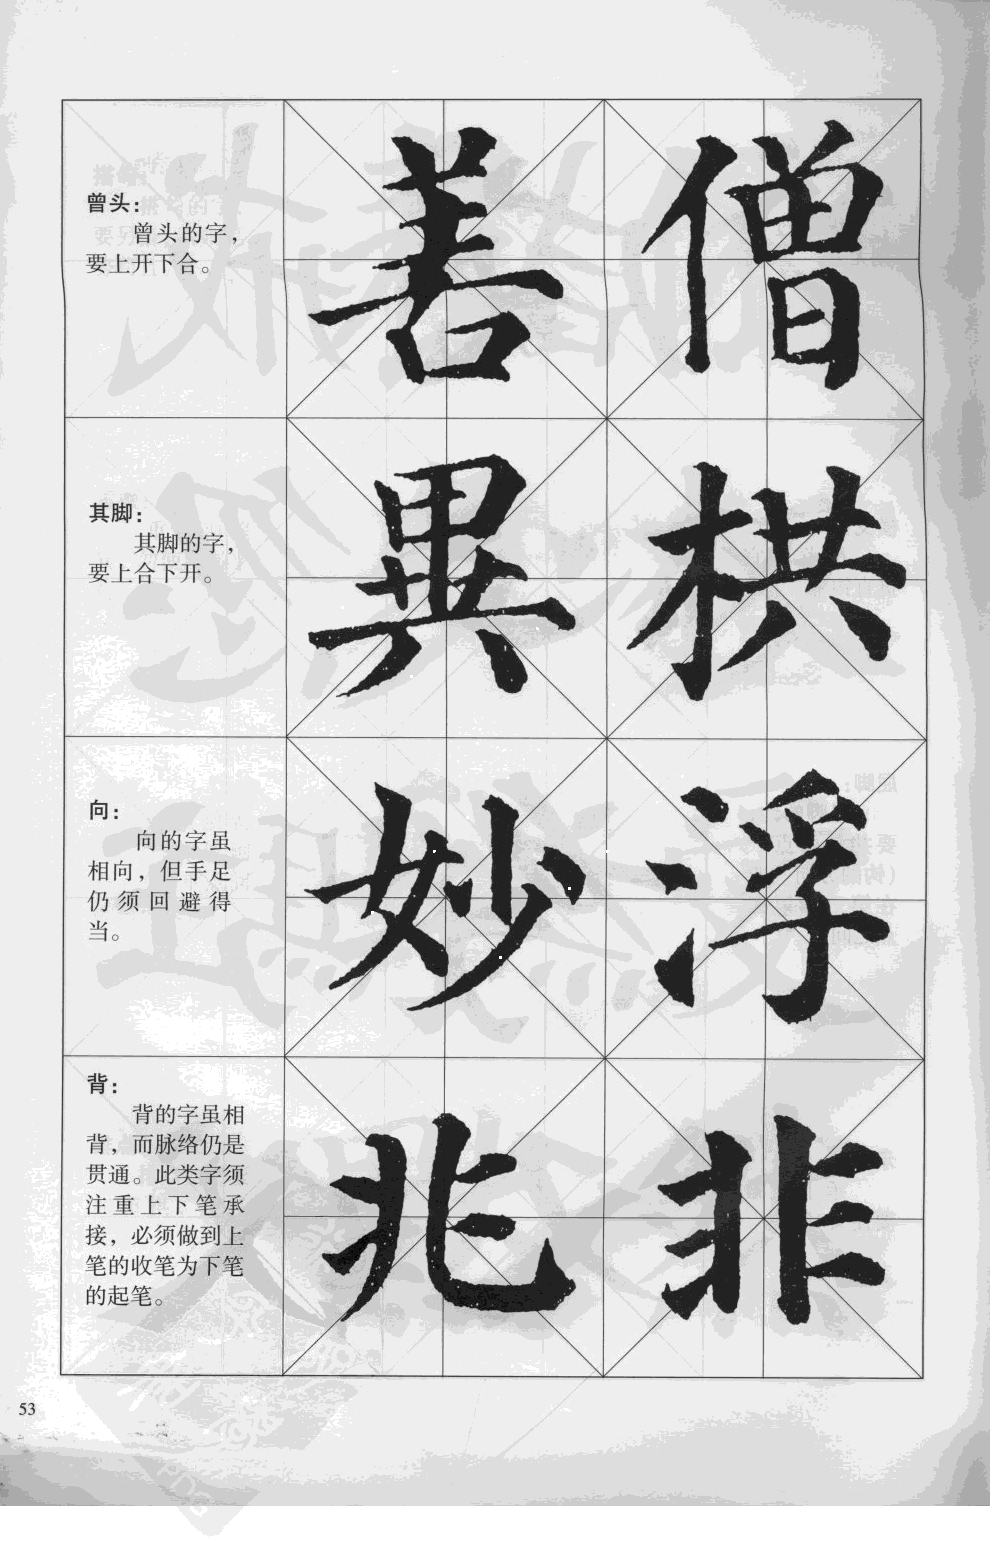 曾头：
曾头的字，
要上开下合。
善 僧
其脚：
其脚的字，
要上合下开。
異 栱
向：
向的字虽
相向，但手足
仍须回避得
当。
妙 浮
背：
背的字虽相
背，而脉络仍是
贯通。此类字须
注重上下笔承
接，必须做到上
笔的收笔为下笔
的起笔。
兆 非
53